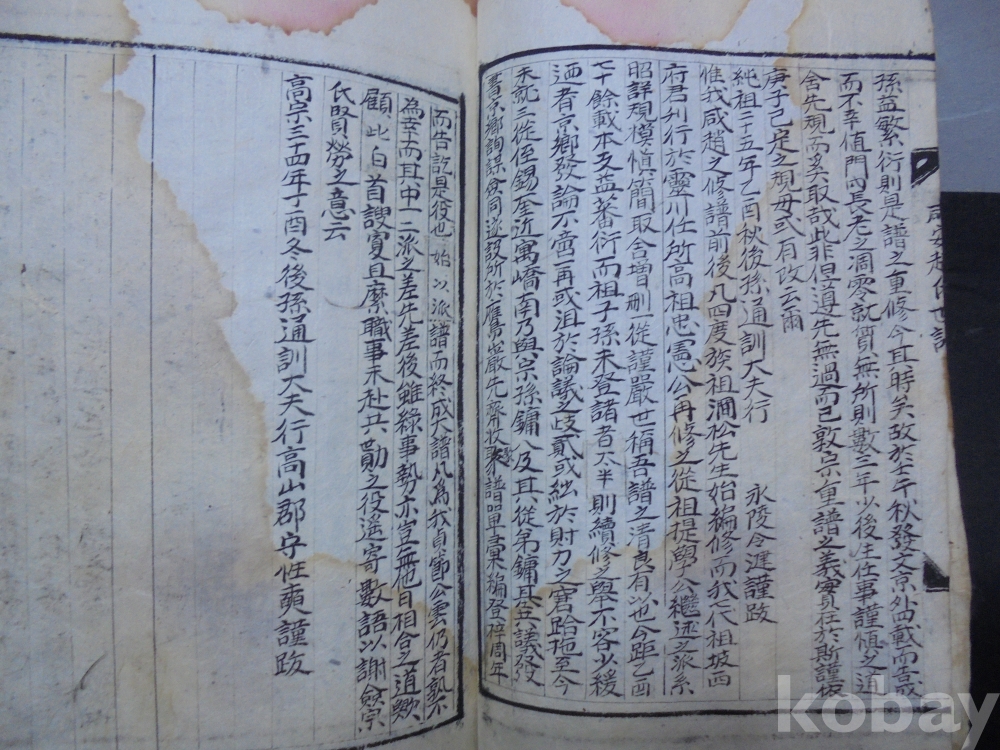 孫益繁衍則是譜之重修今其時矣故於壬午秋發文京外期載而告成
而不幸值門內長老之凋零就質無所則數三年少後生任事謹慎之道
舍先規而奚取哉此非但遵先無過而已敦宗重譜之義實在於斯謹按
庚子已定之規毋或有改云爾
純祖二十五年乙酉秋後孫通訓大夫行 永陵令 謹跋
惟我咸趙之修譜前後凡四度族祖澗松先生始編修而我七代祖坡西
府君刊行於靈川任所高祖忠憲公再修之從祖提學公繼述之派系
昭詳規模慎簡取舍增刪一從謹嚴世稱吾譜之清良有以也今距乙酉
七十餘載本支益蕃衍而祖子孫未登諸者太半則續修之舉不容少緩
迺者京鄉發論不啻一再或沮於論議之歧貳或絀於財力之窘跲拖至今
未就三從侄錫 近寓嶠南乃與宗孫鏞八及其從弟鏞 議發
書京鄉詢謀僉同遂設所於鷹巖先齋收聚譜單彙編登梓周年
而告訖具役也始以派譜而終成大譜凡為我貞節公雲仍者孰不
為幸而其中一二派之差先差後雖緣事勢亦豈無他日相合之道歟
顧此白首 寔且縻職事未赴共勷之役遙寄數語以謝僉宗
氏賢勞之意云
高宗三十四年丁酉冬後孫通訓大夫行高山郡守性 謹跋
咸安趙氏世譜
kobay